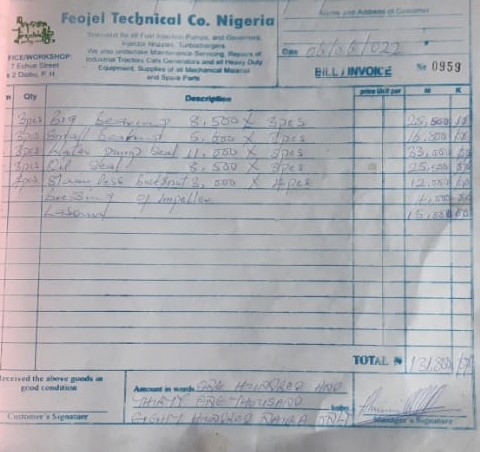 Feojel Technical Co. Nigeria
Name and Address of Customer
Specialist for all Fuel Injection Pumps, and Governors,
Injector Nozzles, Turbochargers.
We also undertake Maintenance Servicing, Repairs of
Industrial Tractors Cats Generators and all Heavy Duty
Equipment, Supplies of all Mechanical Material
and Spare Parts
FICE/WORKSHOP
7 Echue Street
s 2 Diobu, P. H.
Date 06/05/022
BILL / INVOICE № 0959
Qty Description price Unit per N K
3pcs Big bearing 8,500 X 3pcs 25,500
3pcs Small bearing 5,600 X 3pcs 16,800
3pcs Water pump Seal 11,000 X 3pcs 33,000
3pcs Oil Seal 8,500 X 3pcs 25,500
4pcs Stainless 3,000 X 4pcs 12,000
of Impeller 4,000
15,000
TOTAL ₦ 131,800
Received the above goods in
good condition
Customer's Signature
Amount in words ONE HUNDRED AND
THIRTY ONE THOUSAND
EIGHT HUNDRED NAIRA ONLY
kobo
Manager's Signature